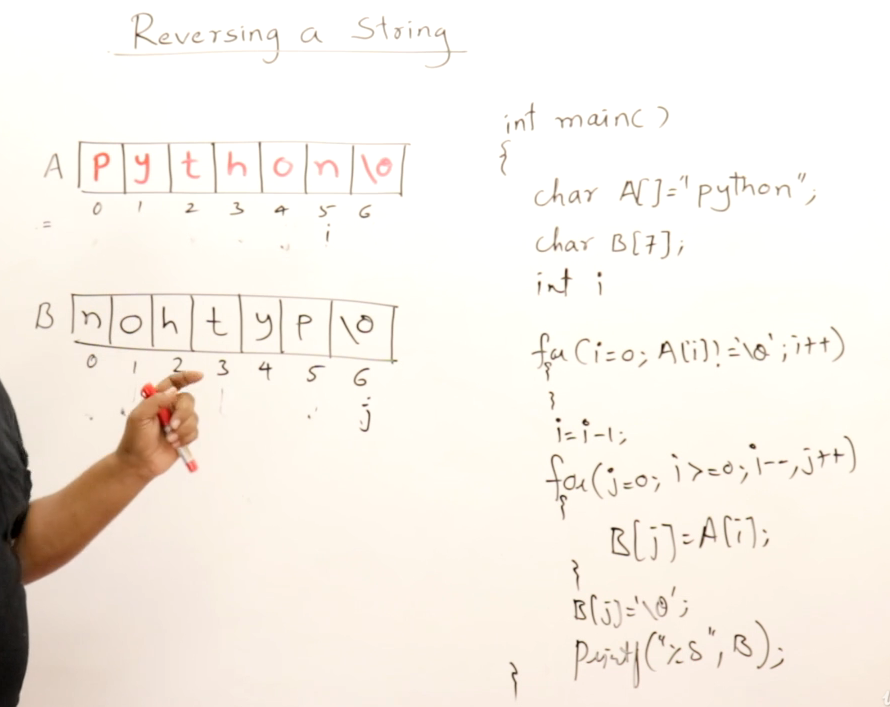 Reversing a String
A p y t h o n \0
0 1 2 3 4 5 6
=
i
B n o h t y p \0
0 1 2 3 4 5 6
j
int main()
{
char A[]="python";
char B[7];
int i
for(i=0; A[i]!='\0'; i++)
{
}
i=i-1;
for(j=0; i>=0; i--, j++)
{
B[j]=A[i];
}
B[j]='\0';
printf("%s", B);
}